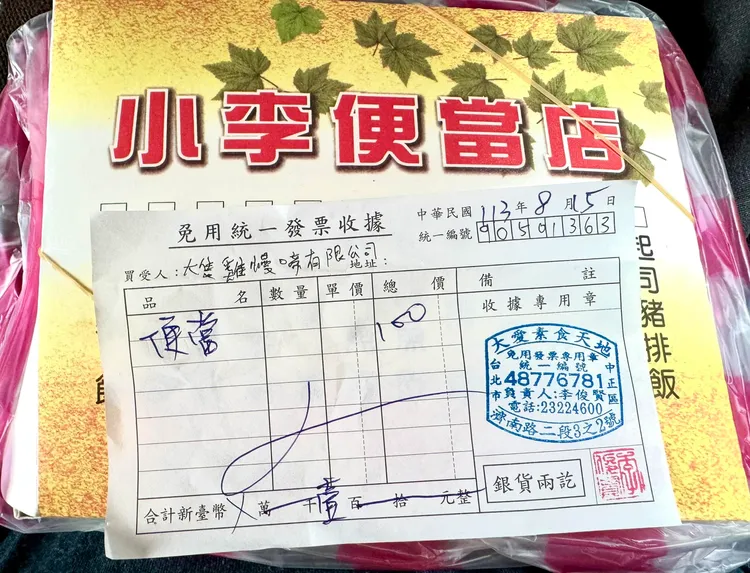 小李便當店
起司豬排飯
免用統一發票收據
中華民國113年8月15日
統一編號 90591363
買受人：大隻雞慢啼有限公司 地址：
品名 數量 單價 總價 備註
便當 100
收據專用章
大愛素食天地
免用發票專用章
統一編號
台北市 48776781 中正區
負責人:李俊賢
電話:23224600
濟南路二段3之2號
合計新臺幣 萬 千壹百 拾 元整
銀貨兩訖